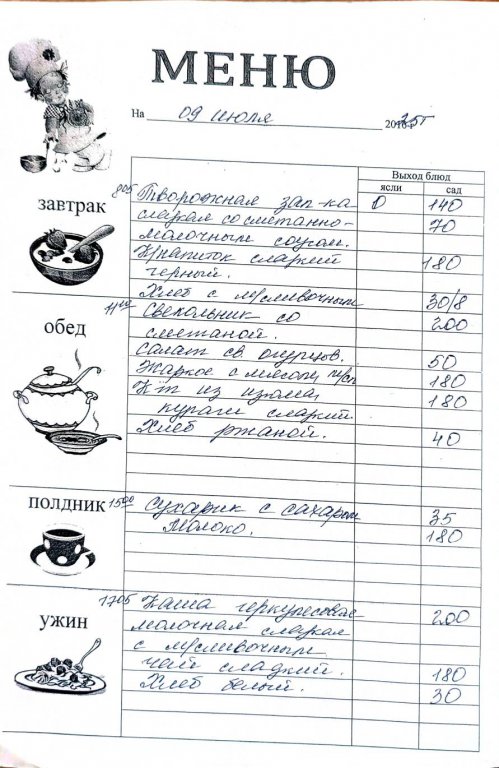 МЕНЮ
На 09 июля 2016 г 25г
Выход блюд
ясли сад
завтрак 8 05 Творожная зап-ка 0 140
сладкая со сметанно- 70
молочным соусом.
К/напиток сладкий 180
черный.
Хлеб с м/сливочным 30/8
обед 11 40 Свекольник со 200
сметаной.
Салат св. огурцов. 50
Жаркое с мясом п/сп 180
К-т из изюма, 180
кураги сладкий.
Хлеб ржаной. 40
полдник 15 00 Сухарик с сахаром 35
Молоко. 180
ужин 17 05 Каша геркулесовая 200
молочная сладкая
с м/сливочным
Чай сладкий. 180
Хлеб белый. 30